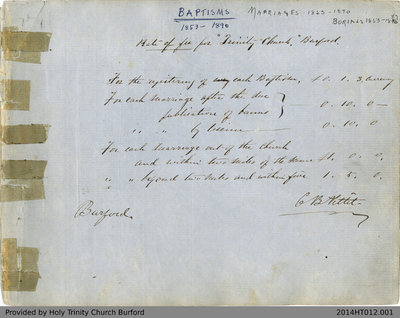 BAPTISMS
1853 - 1890
MARRIAGES 1853-1890
BURIALS 1853-18
Rate of fee for "Trinity Church," Burford.
For the registering of each Baptism, £0. 1. 3, currency
For each marriage after the due
publication of banns } 0. 10. 0 —
" " by license — 0. 10. 0
For each marriage out of the church
and within two miles of the same £1. 0. 0.
" " beyond two miles and within five 1. 5. 0.
C. B. Pettit
Burford
Provided by Holy Trinity Church Burford
2014HT012.001